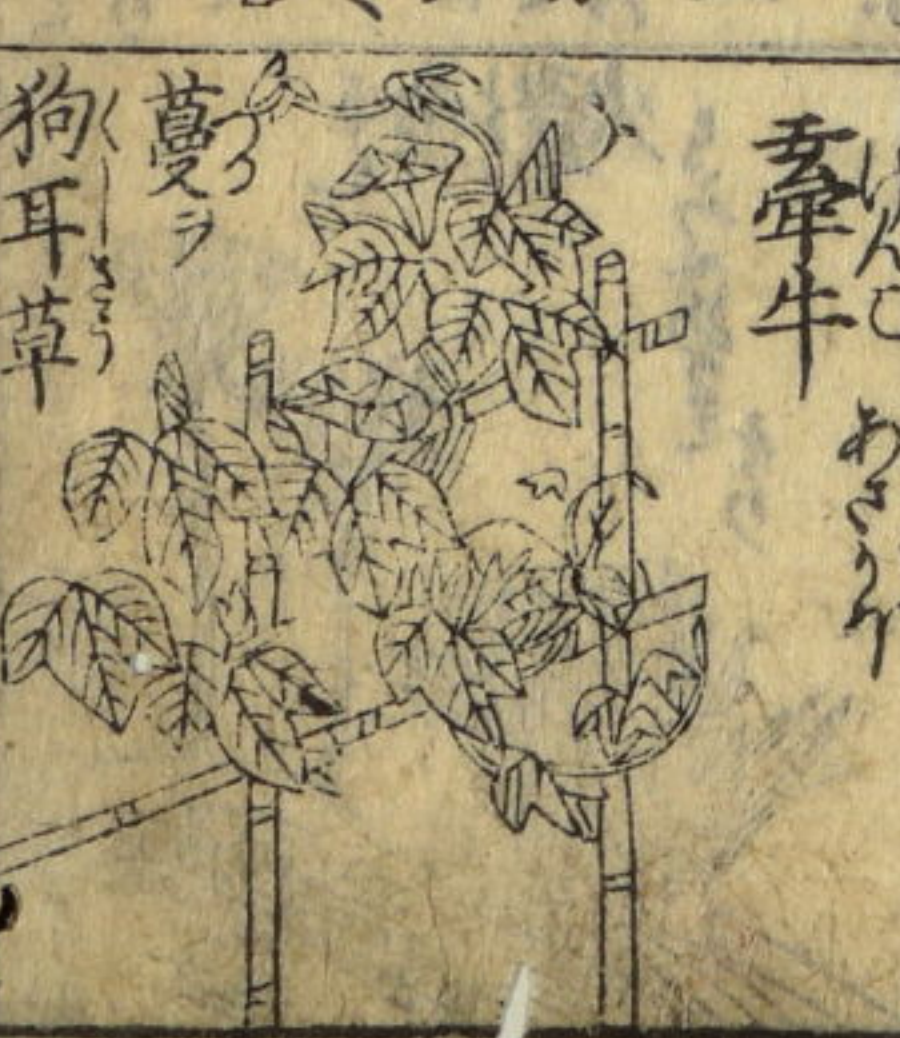 牽牛
けんご
あさがほ
蔓ラ
つる
狗耳草
くしさう